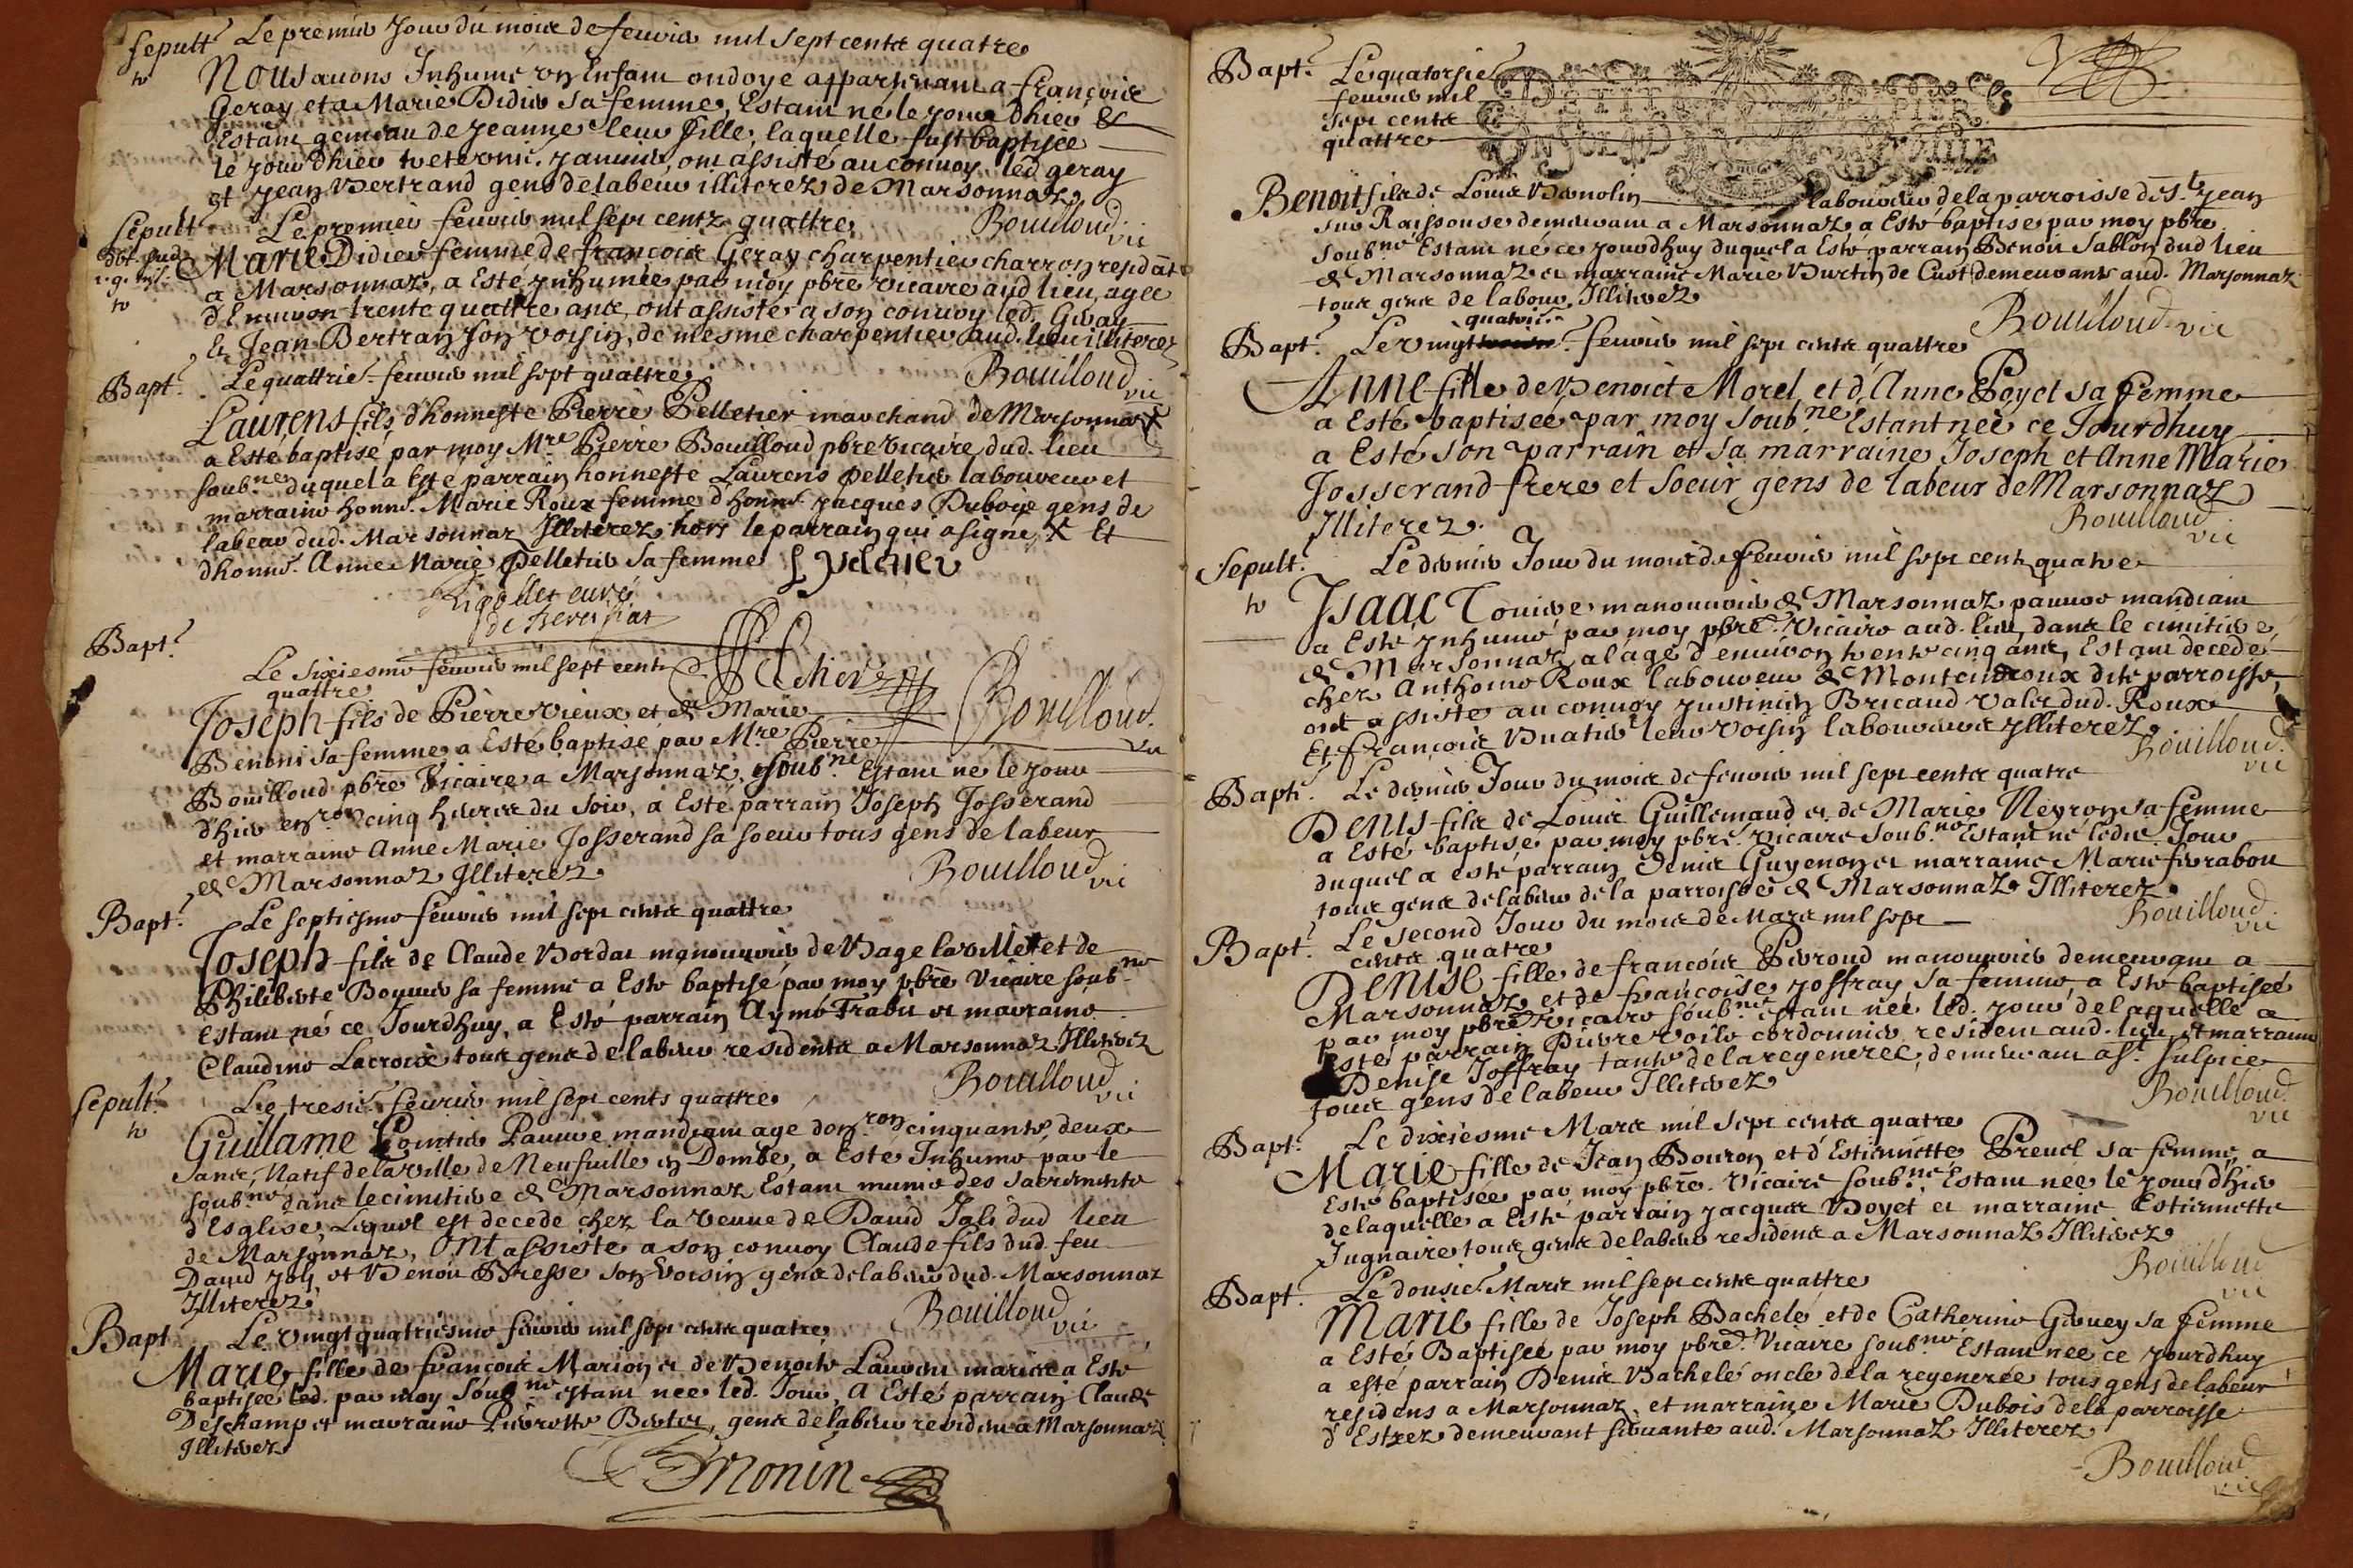 sepult.e Le premier Jour du mois de feuvrier mil sept cents quattre
Nous auons Inhumé vn Enfant ondoyé appartenant a françois
Geray et a Marie Didier sa femme, Estant né le jour dhier &
Estant gemeau de jeanne leur fille, laquelle fust baptisée
le jour dhier janvier, ont assisté au conuoy led. geray
et jean Bertrand gens de labeur illiterez de Marsonnaz
Bouilloud vic
sepult.e Le premier feuvrier mil sept centz quattre
Marie Didier femme de francois Geray charpentier charron residāt
a Marsonnaz, a Esté Inhumée par moy pbrē vicaire aud. lieu, agée
d'Enuiron trente quattre ans, ont assisté a son conuoy led. Geray
& Jean Bertran son voisin, de mesme charpentier aud. lieu illiterez
Bouilloud vic
Bapt.e Le quattrie. feuvrier mil sept quattre
Laurens fils d'honneste Pierre Pelletier marchand de Marsonnaz X
a Esté baptisé par moy M.re Pierre Bouilloud pbre vicaire dud. lieu
soub.ne duquel a esté parrain honneste Laurens Pelletier laboureur et
marraine honne. Marie Roux femme d'honne jacques Dubois gens de
labeur dud. Marsonnaz Illiterez hors le parrain qui a signé X Et
d'honne. Anne Marie Pelletier sa femme L peletier
curé
Bapt.e
Le sixiesme feuvrier mil sept cents
quattre
Joseph fils de Pierre Vieux et de Marie
Benoni sa femme, a Esté baptisé par M.re Pierre
Bouilloud pbrē Vicaire a Marsonnaz, soub.ne Estant né le jour
Bouilloud vic
d'hier en.ron cinq heures du soir, a Esté parrain Joseph Josserand
et marraine Anne Marie Josserand sa soeur tous gens de labeur
de Marsonnaz Illiterez
Bouilloud vic
Bapt.e Le septiesme feuvrier mil sept cents quattre
Joseph fils de Claude Bordat manouurier de Bage la ville et de
Philiberte Boyuer sa femme a Esté baptisé par moy pbrē Vicaire soub.ne
Estant né ce Jourdhuy, a Esté parrain Aymé Trabu et marraine
Claudine Lacroix tous gens de labeur residents a Marsonnaz Illiterez
Bouilloud vic
sepult.e Le tresie. feuvrier mil sept cents quattre
Guillame Comtier Pauure mandiant agé d'en.ron cinquante, deux
ans, Natif de la ville de Neufuille en Dombe, a Esté Inhumé par le
soub.ne dans le cimetiere de Marsonnaz Estant munie des sacrements
d'Esglise, Lequel est decedé chez la veuue de Dauid Joly dud lieu
de Marsonnaz, ont assisté a son conuoy Claude fils dud. feu
Dauid Joly et Benoit Bresse son voisin gens de labeur dud. Marsonnaz
Illiterez
Bouilloud vic
Bapt Le vingt quatriesme feuvrier mil sept cents quatre
Marie fille de françois Marion et de Benoite Lauvent mariés a Esté
baptisée led. par moy soub.ne estant née led. Jour, a Esté parrain Claude
Deschamp et marraine Pierrette , gens de labeur resident a Marsonnaz
Illiterez
Monin
Bapt.e Le quatorsie.
feuvrier mil
sept cents
quattre
Benoit fils de Louis laboureur de la parroisse de S.t jean
sur Raissouse demeurant a Marsonnaz, a Esté baptisé par moy pbre
soub.ne Estant né ce jourdhuy duquel a Esté parrain Benoit Sablon dud lieu
de Marsonnaz et marraine Marie Burtin de Cust demeurants aud. Marsonnaz
tous gens de labour Illiterez
Bouilloud vic
quatrie.
Bapt.e Le vingt feuvrier mil sept cents quattre
Anne fille de Benoict Morel, et d'Anne Poyet sa femme
a Esté baptisée par moy soub.ne Estant née ce Jourdhuy
a Esté son parrain et sa marraine Joseph et Anne Marie
Josserand frere et soeur gens de labeur de Marsonnaz
Illiterez.
Bouilloud vic
sepult.e Le dernier Jour du mois de feuvrier mil sept cents quatre
Isaac manouurier de Marsonnaz pauure mandiant
a Esté Inhumé par moy pbrē. Vicaire aud. lieu, dans le cimitiere
de Marsonnaz, a l'age d'enuiron trente cinq ans, Estant decedé
chez Anthoine Roux laboureur de parroisse,
ont assisté au conuoy justinien Bricaud valet dud. Roux
Et françois leur voisin laboureurs Illiterez
Bouilloud vic
Bapt.e Le dernier Jour du mois de feuvrier mil sept cents quatre
Denis fils de Louis Guillemaud et de Marie Neyron sa femme
a Esté baptisé par moy pbre. vicaire soub.ne Estant né ledit Jour
duquel a esté parrain Denis Guyenon et marraine Marie
tous gens de labeur de la parroisse de Marsonnaz Illiterez
Bouilloud vic
Bapt.e Le second Jour du mois de Mars mil sept
cents quatre
Denise fille de francois Perroud manouurier demeurant a
Marsonnaz et de françoise Joffray sa femme, a Esté baptisée
par moy pbrē vicaire soub.ne estant née led. jour de laquelle a
esté parrain Pierre cordonnier resident aud. lieu et marraine
Denise Joffray tante de la regenerée, demeurant a S.t sulpice
tous gens de labeur Illiterez
Bouilloud vic
Bapt.e Le dixiesme Mars mil sept cents quatre
Marie fille de Jean Bouron et d'Estiennette Preuel sa femme, a
Esté baptisée par moy pbrē. vicaire soub.ne Estant née le jour dhier
de laquelle a Esté parrain jacques Boyet et marraine Estiennette
Jugnaire tous gens de labeur residens a Marsonnaz Illiterez
Bouilloud vic
Bapt.e Le dousie. Mars mil sept cents quattre
Marie fille de Joseph Bachelé et de Catherine sa femme
a Esté Baptisée par moy pbre. Vicaire soub.ne Estant née ce jourdhuy
a esté parrain Denis Bachelé oncle de la regenerée tous gens de labeur
residens a Marsonnaz, et marraine Marie Dubois de la parroisse
d'Estrez demeurant seruante aud. Marsonnaz Illiterez
Bouilloud vic